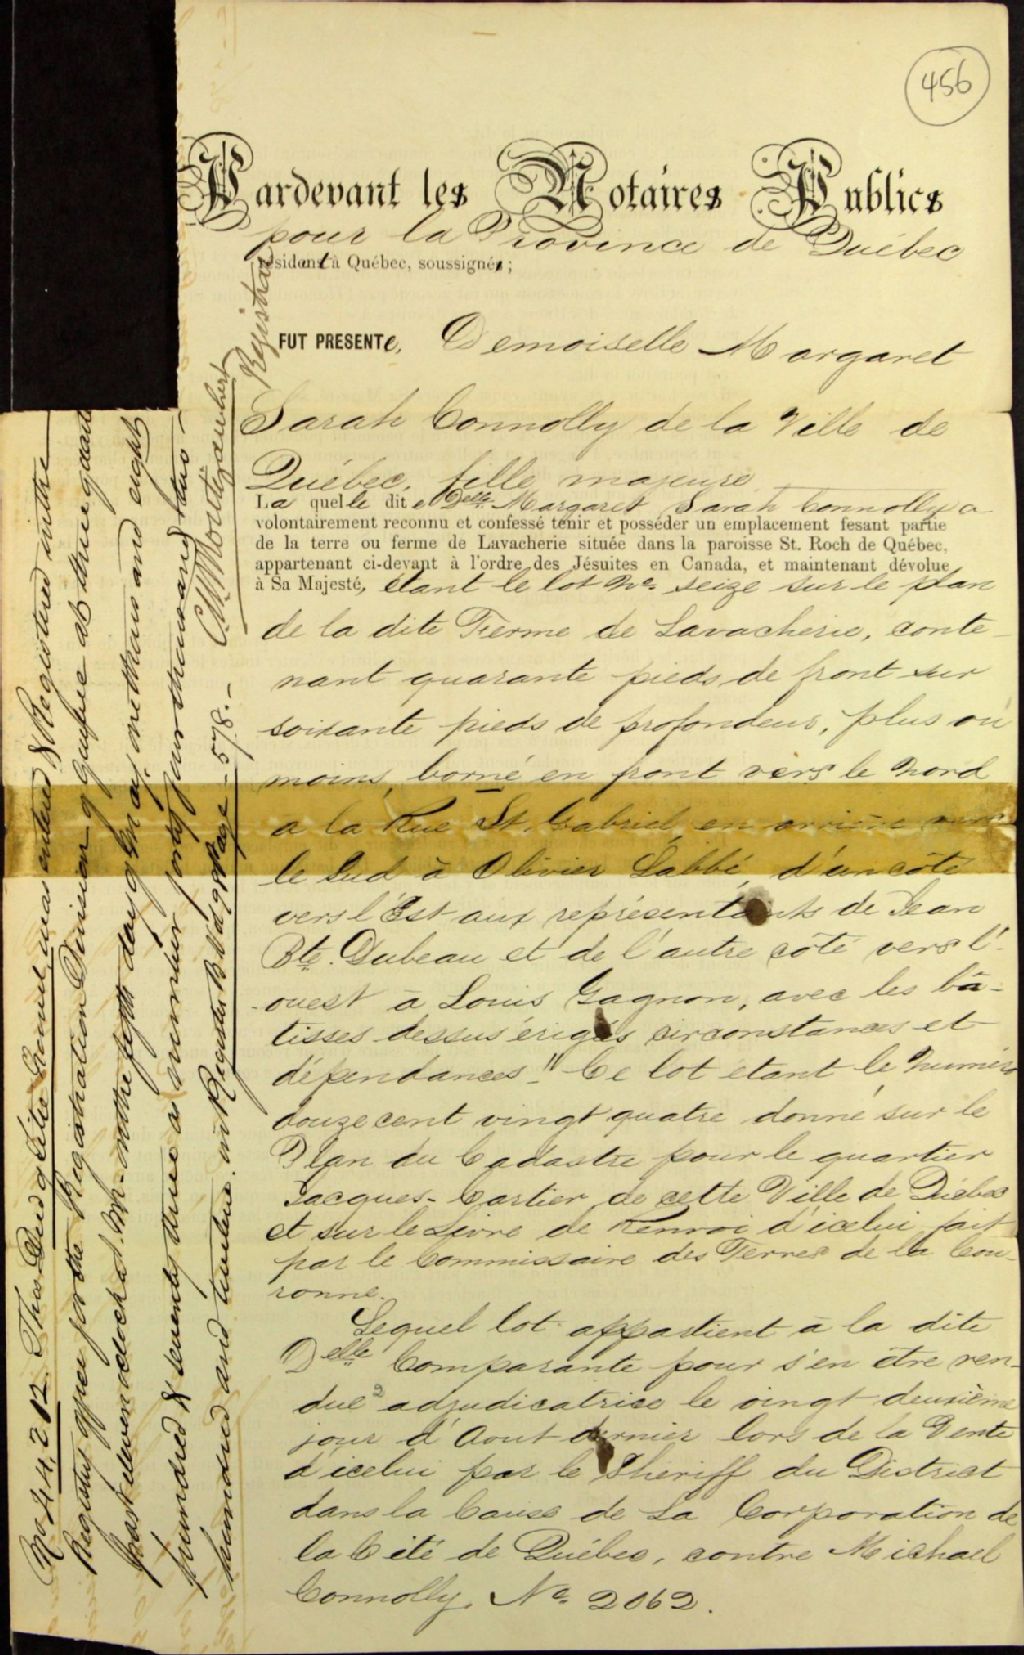 456
Pardevant les Notaires Publics
pour la Province de Québec
résident à Québec, soussignés ;
FUT PRESENTe, Demoiselle Margaret
Sarah Connolly de la Ville de
Québec, fille majeure
La quelle dite Delle Margaret Sarah Connolly a
volontairement reconnu et confessé tenir et posséder un emplacement fesant partie
de la terre ou ferme de Lavacherie située dans la paroisse St. Roch de Québec,
appartenant ci-devant à l'ordre des Jésuites en Canada, et maintenant dévolue
à Sa Majesté, étant le lot No. seize sur le plan
de la dite Ferme de Lavacherie, conte-
nant quarante pieds de front sur
soixante pieds de profondeur, plus ou
moins, borné en front vers le nord
a la Rue St. Gabriel, en arrière vers
le Sud à Olivier Labbé, d'un côté
vers l'Est aux représentants de Jean
Bte. Dubeau et de l'autre côté vers l'-
ouest à Louis Gagnon, avec les bâ-
tisses dessus érigés circonstances et
dépendances." Ce lot étant le numéro
douze cent vingt quatre donné sur le
Plan du Cadastre pour le quartier
Jacques-Cartier de cette Ville de Québec
et sur le Livre de Renvoi d'icelui fait
par le Commissaire des Terres de la Cou-
ronne.
Lequel lot appartient à la dite
Delle Comparante pour s'en être ren-
due adjudicatrice le vingt deuxième
jour d'Aout dernier lors de la Vente
d'icelui par le Shériff du District
dans la Cause de La Corporation de
la Cité de Québec, contre Michael
Connolly, No. 2062.
No 44,212. This Deed of Titre Nouvel was entered & Registered in the
Registry office for the Registration Division of Quebec at three quarters
past eleven o'clock A.M. on the fifth day of May, one thousand eight
hundred & seventy three as number forty four thousand two
hundred and twelve. in Register B Vol 98 Page - 578. -
C.N. Montizambert
Registrar